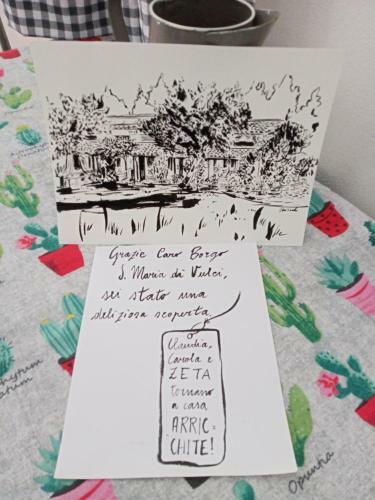 Grazie Caro Borgo
S. Maria di Vulci,
sei stato una
deliziosa scoperta.
Claudia,
Carola e
ZETA
tornano
a casa
ARRIC=
CHITE!
Opuntia